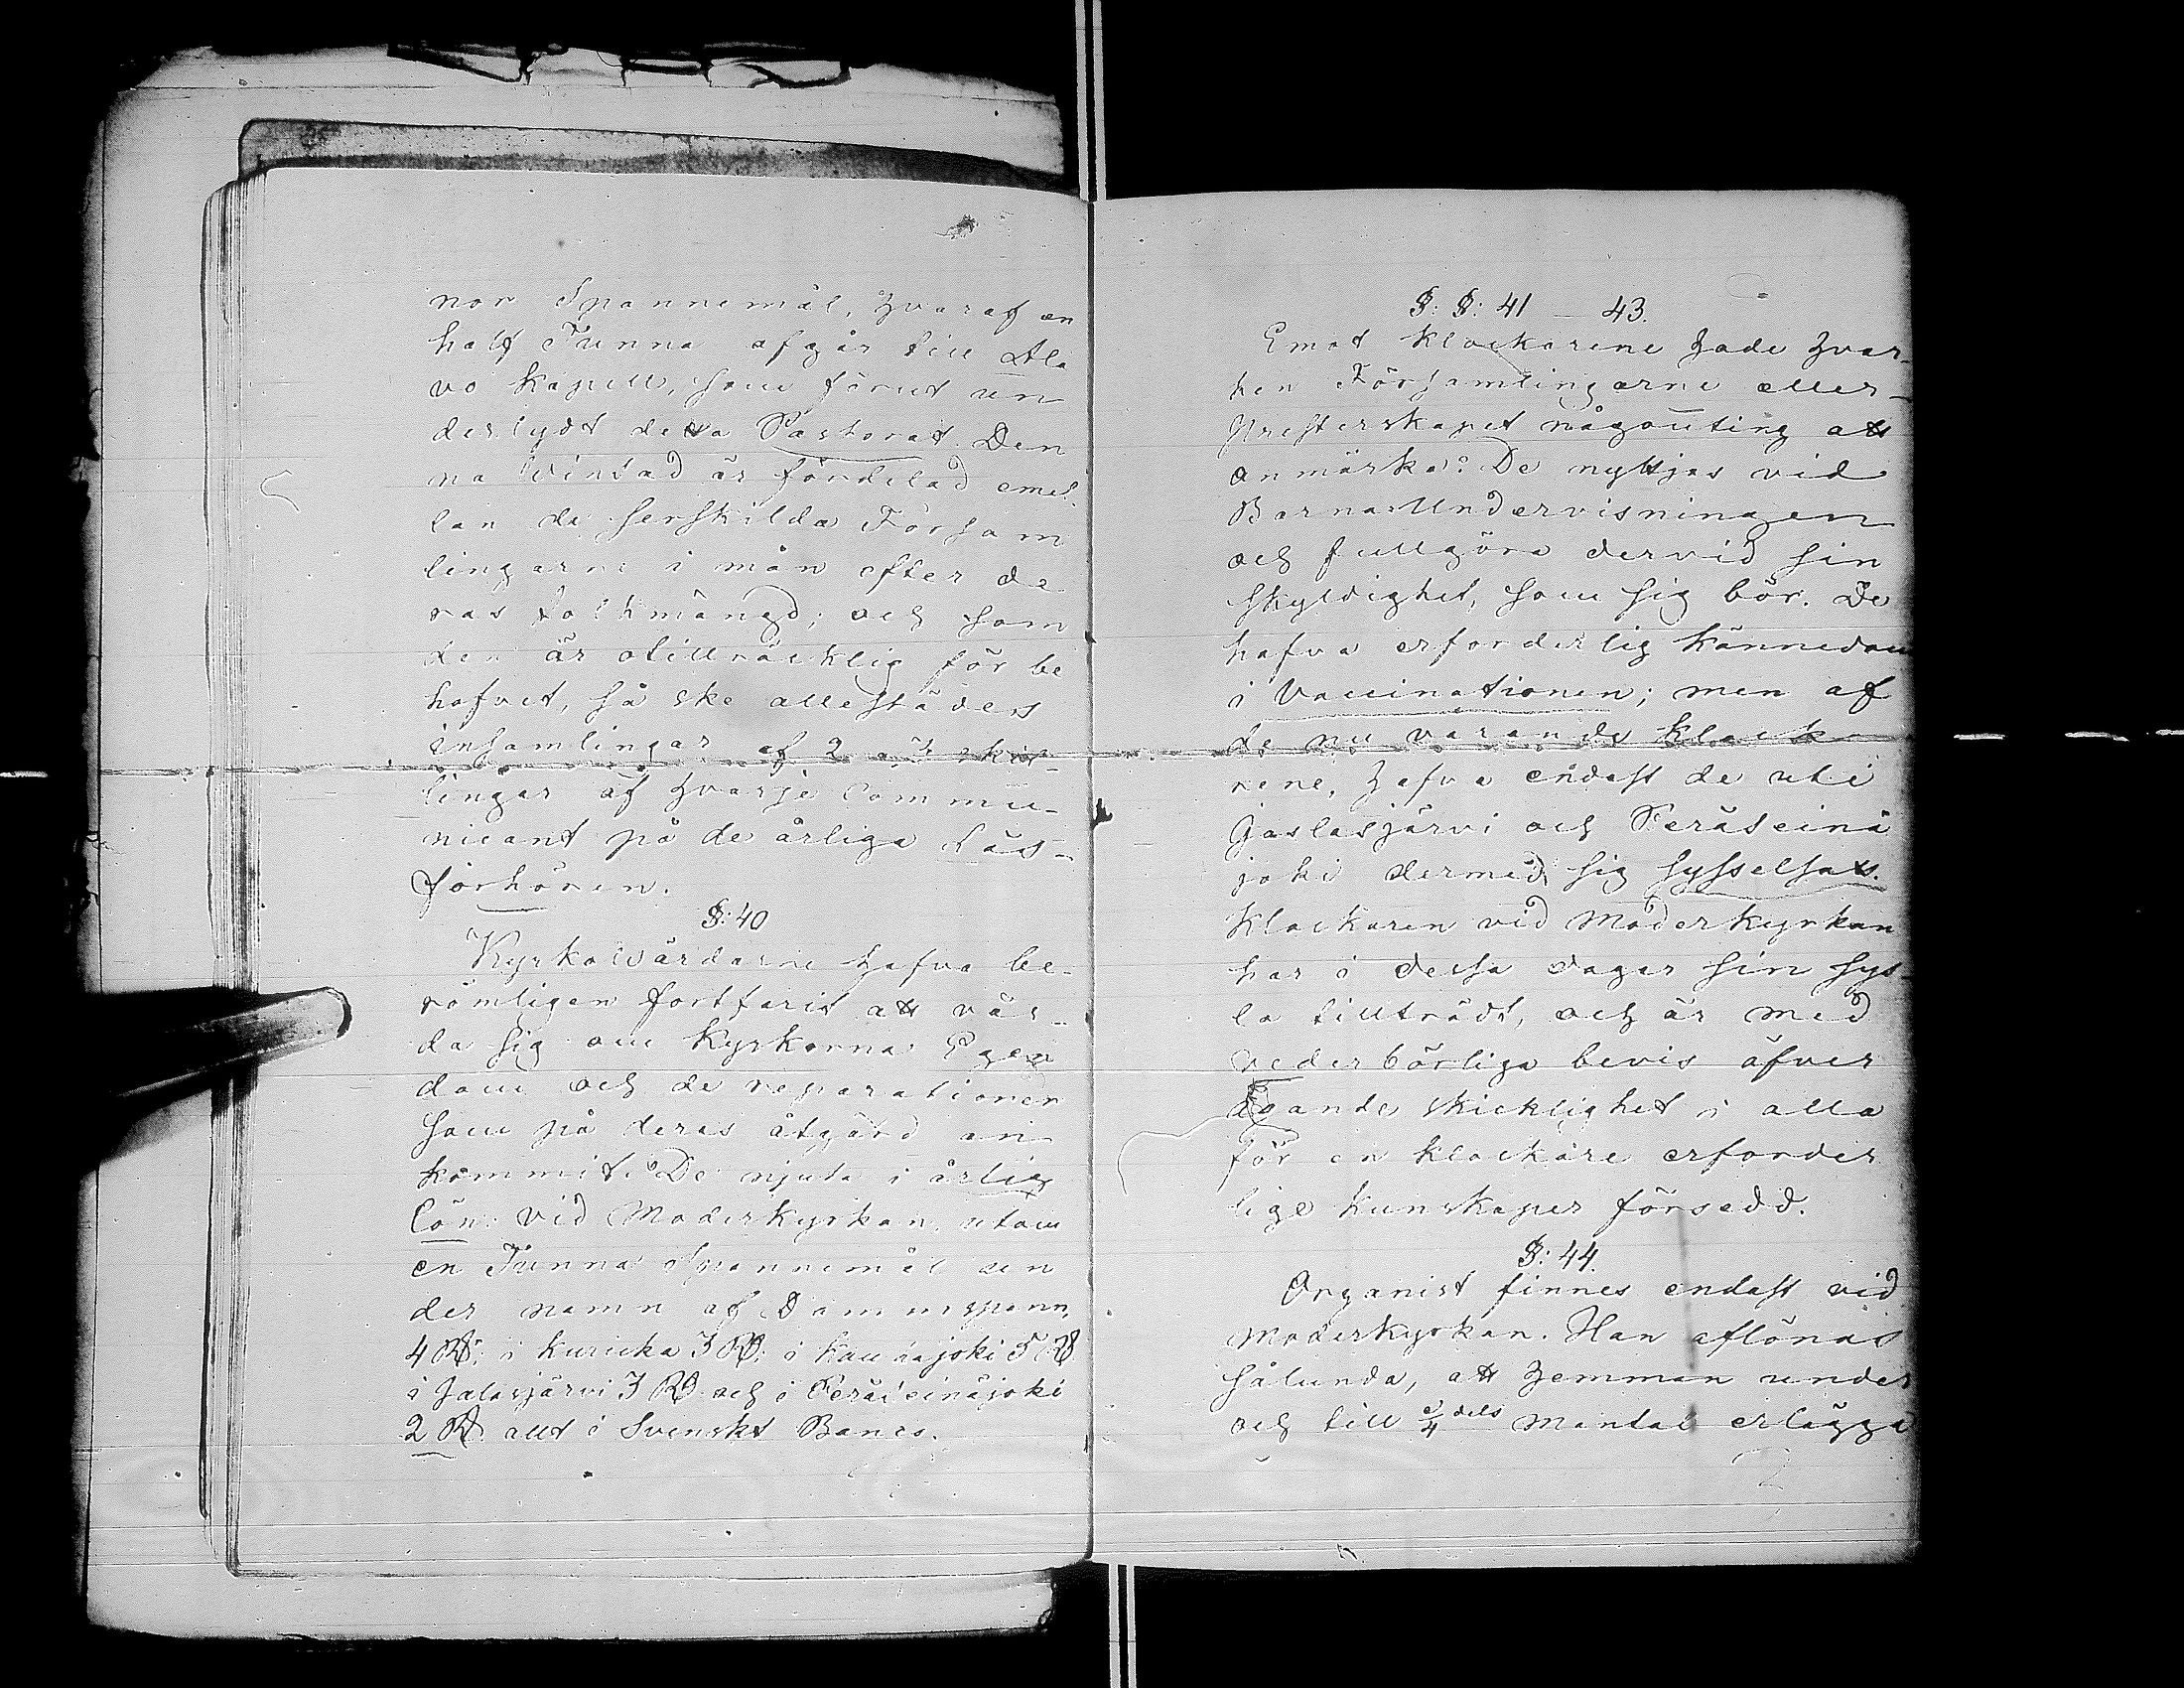 nor Spannemål, hvaraf en
half Tunna afgår till Ala
vo kapell, som förut un
derlydt detta Pastorat. Den
na Vinsad är fördelad emel
lan de serskilda Försam
lingarne i mån efter de
ras folkmängd; och som
den är otillräcklig för be
hofvet, så ske allestädes
insamlingar af 2 a 3 skil-
lingar af hvarje Commu-
nicant på de årliga Läs-
förhören.
§: 40
Kyrkowärdarne hafva be-
römligen fortfarit att vår-
da sig om Kyrkorna Egen
dom och de reparationer
som på deras åtgärd an
kommit. De njuta i årlig
lön: vid Moderkyrkan, utom
en Tunna Spannemål un
der namn af Dammspann,
4 Rd; i Kuricka 3 Rd; i Kauhajoki 5 Rd
i Jalasjärvi 3 Rd och i Peräseinäjoki
2 Rd. allt i Svenskt Banco.
§: §: 41 — 43.
Emot klockarene hade hvar-
ken Församlingarne eller
Presterskapet någonting att
anmärka: De nyttjas vid
Barna Undervisningen
och fullgöra dervid sin
skyldighet, som sig bör. De
hafva erforderlig kännedom
i Vaccinationen; men af
de nu varande klocka
rene, hafva endast de uti
Jaslasjärvi och Peräseinä
joki dermed sig sysselsatt.
Klockaren vid Moderkyrkan
har i dessa dagar sin sys-
la tillträdt, och är med
vederbörliga bevis öfver
ägande skicklighet i alla
för en klockare erforder
lige kunskaper försedd.
§: 44.
Organist finnes endast vid
Moderkyrkan. Han aflönas
sålunda, att hemman under
och till 1/4 dels mantal erlägga